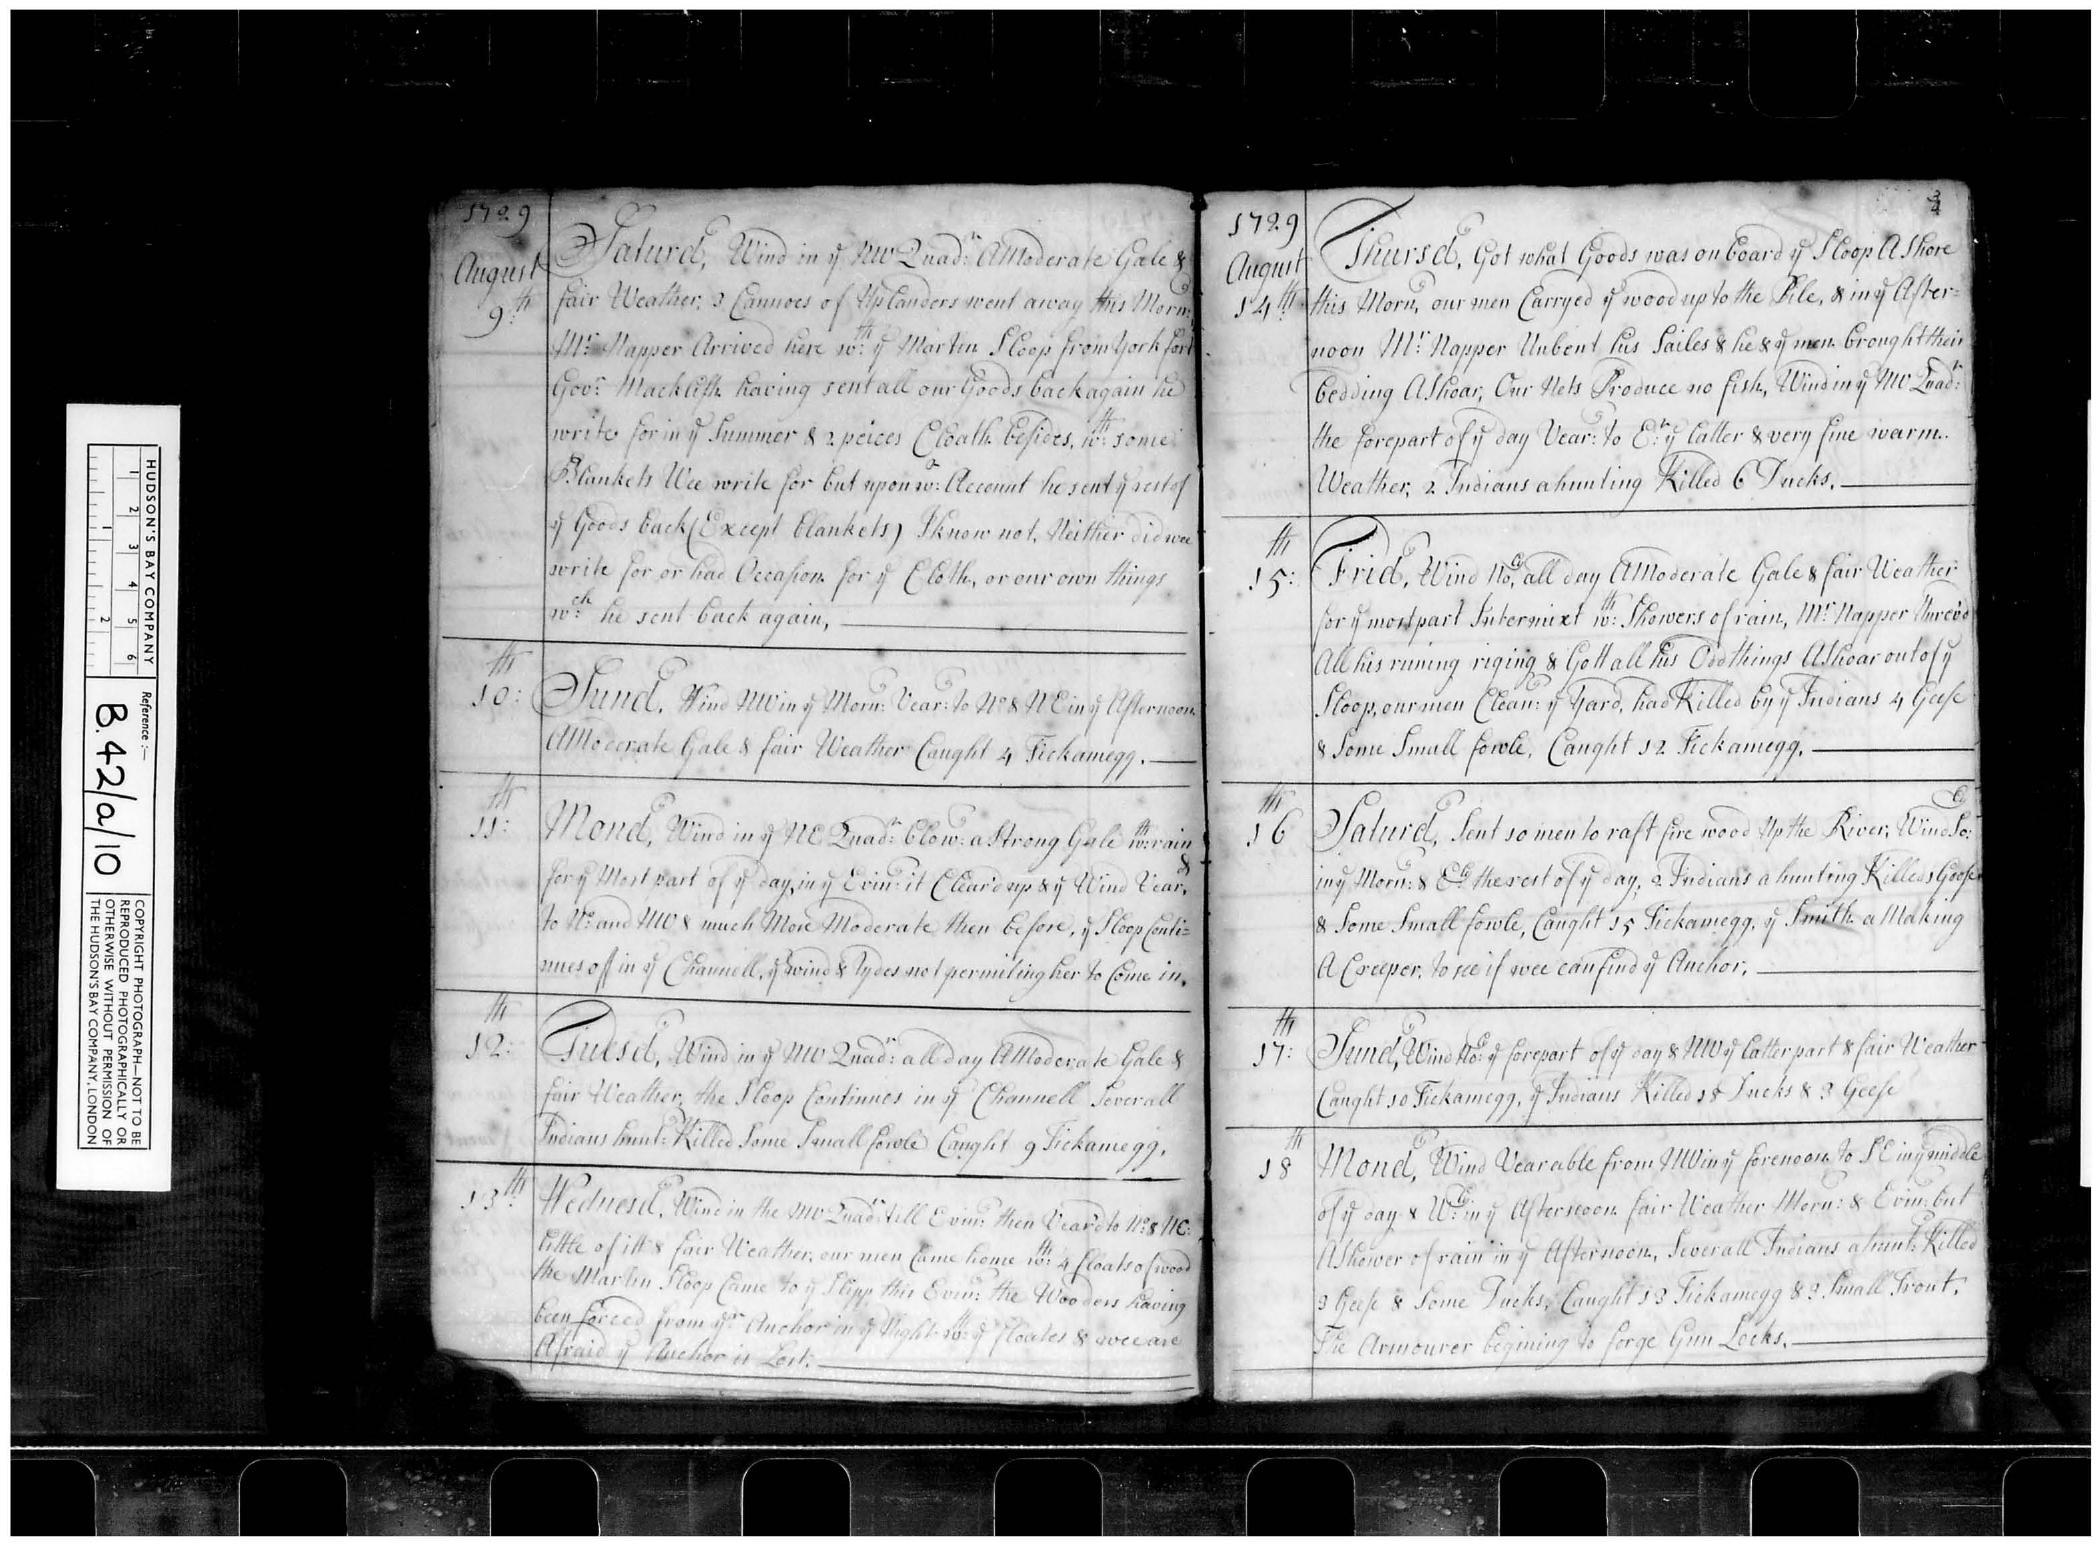 HUDSON'S BAY COMPANY
1 2 3 4 5 6
1 2
Reference:—
B.42/a/10
COPYRIGHT PHOTOGRAPH—NOT TO BE
REPRODUCED PHOTOGRAPHICALLY OR
OTHERWISE WITHOUT PERMISSION OF
THE HUDSON'S BAY COMPANY, LONDON
1729
August
9th
Saturdy, Wind in ye NW Quadn: A Moderate Gale &
fair Weather, 3 Cannoes of Uplanders went away this Morng:
Mr: Napper Arrived here wth: ye Martin Sloop from York fort
Govr: Mackclish having sent all our Goods back again he
write for in ye Summer & 2 peices Cloath besides, wth: some
Blankets Wee write for but upon wt: Account he sent ye rest of
ye Goods back (Except blankets) I know not, Neither did wee
write for or had Occasion for ye Cloth, or our own things
wch: he sent back again,
10th:
Sundy, Wind NW in ye Morng: Vearg: to No & NE in ye Afternoon
A Moderate Gale & fair Weather Caught 4 Tickamegg.
11th:
Mondy, Wind in ye NE Quadn: blowg: a Strong Gale wth: rain
for ye Most part of ye day, in ye Eving: it Clear'd up & ye Wind Veard,
to No: and NW & much More Moderate then before, ye Sloop Conti=
nues off in ye Channell, ye wind & tydes not permiting her to Come in,
12th:
Tuesdy, Wind in ye NW Quadn: all day A Moderate Gale &
fair Weather, the Sloop Continues in ye Channell Severall
Indians huntg: Killed Some Small fowle Caught 9 Tickamegg,
13th:
Wednesdy, Wind in the NW Quadn: till Eving: then Veard to No: & NE:
little of itt & fair Weather, our men Came home wth: 4 floats of wood
the Martin Sloop Came to ye Slipp this Eving: the Wooders having
been forced from yer Anchor in ye Night wth: ye floates & wee are
Afraid ye Anchor is Lost:
3
4
1729
August
14th:
Thursdy, Got what Goods was on board ye Sloop A Shore
this Morng, our men Carryed ye wood up to the Pile, & in ye After=
noon Mr: Napper Unbent his Sailes & he & ye men brought their
bedding A Shoar, Our Nets Produce no fish, Wind in ye NW Quadn:
the forepart of ye day Vearg: to E: ye latter & very fine warm
Weather, 2 Indians a hunting Killed 6 Ducks.
15th:
Fridy, Wind Noly, all day A Moderate Gale & fair Weather
for ye most part Intermixt wth: Showers of rain, Mr: Napper Unreev'd
All his runing riging & Gott all his Odd things A Shoar out of ye
Sloop, our men Cleang: ye Yard, had Killed by ye Indians 4 Geese
& Some Small fowle, Caught 12 Tickamegg.
16th
Saturdy, Sent 10 men to raft fire wood Up the River, Wind Soly:
in ye Morng: & Ely: the rest of ye day, 2 Indians a hunting Killed 1 Goose
& Some Small fowle, Caught 15 Tickamegg, ye Smith a Making
A Creeper, to see if wee can find ye Anchor,
17th:
Sundy, Wind Noly: ye forepart of ye day & NW ye latter part & fair Weather
Caught 10 Tickamegg, ye Indians Killed 18 Ducks & 3 Geese
18th
Mondy, Wind Vearable from NW in ye forenoon to SE in ye middle
of ye day & Wly: in ye Afternoon fair Weather Morng: & Eving: but
A Shower of rain in ye Afternoon, Severall Indians a huntg: Killed
3 Geese & Some Ducks, Caught 13 Tickamegg & 3 Small Trout,
The Armourer begining to forge Gun Locks.